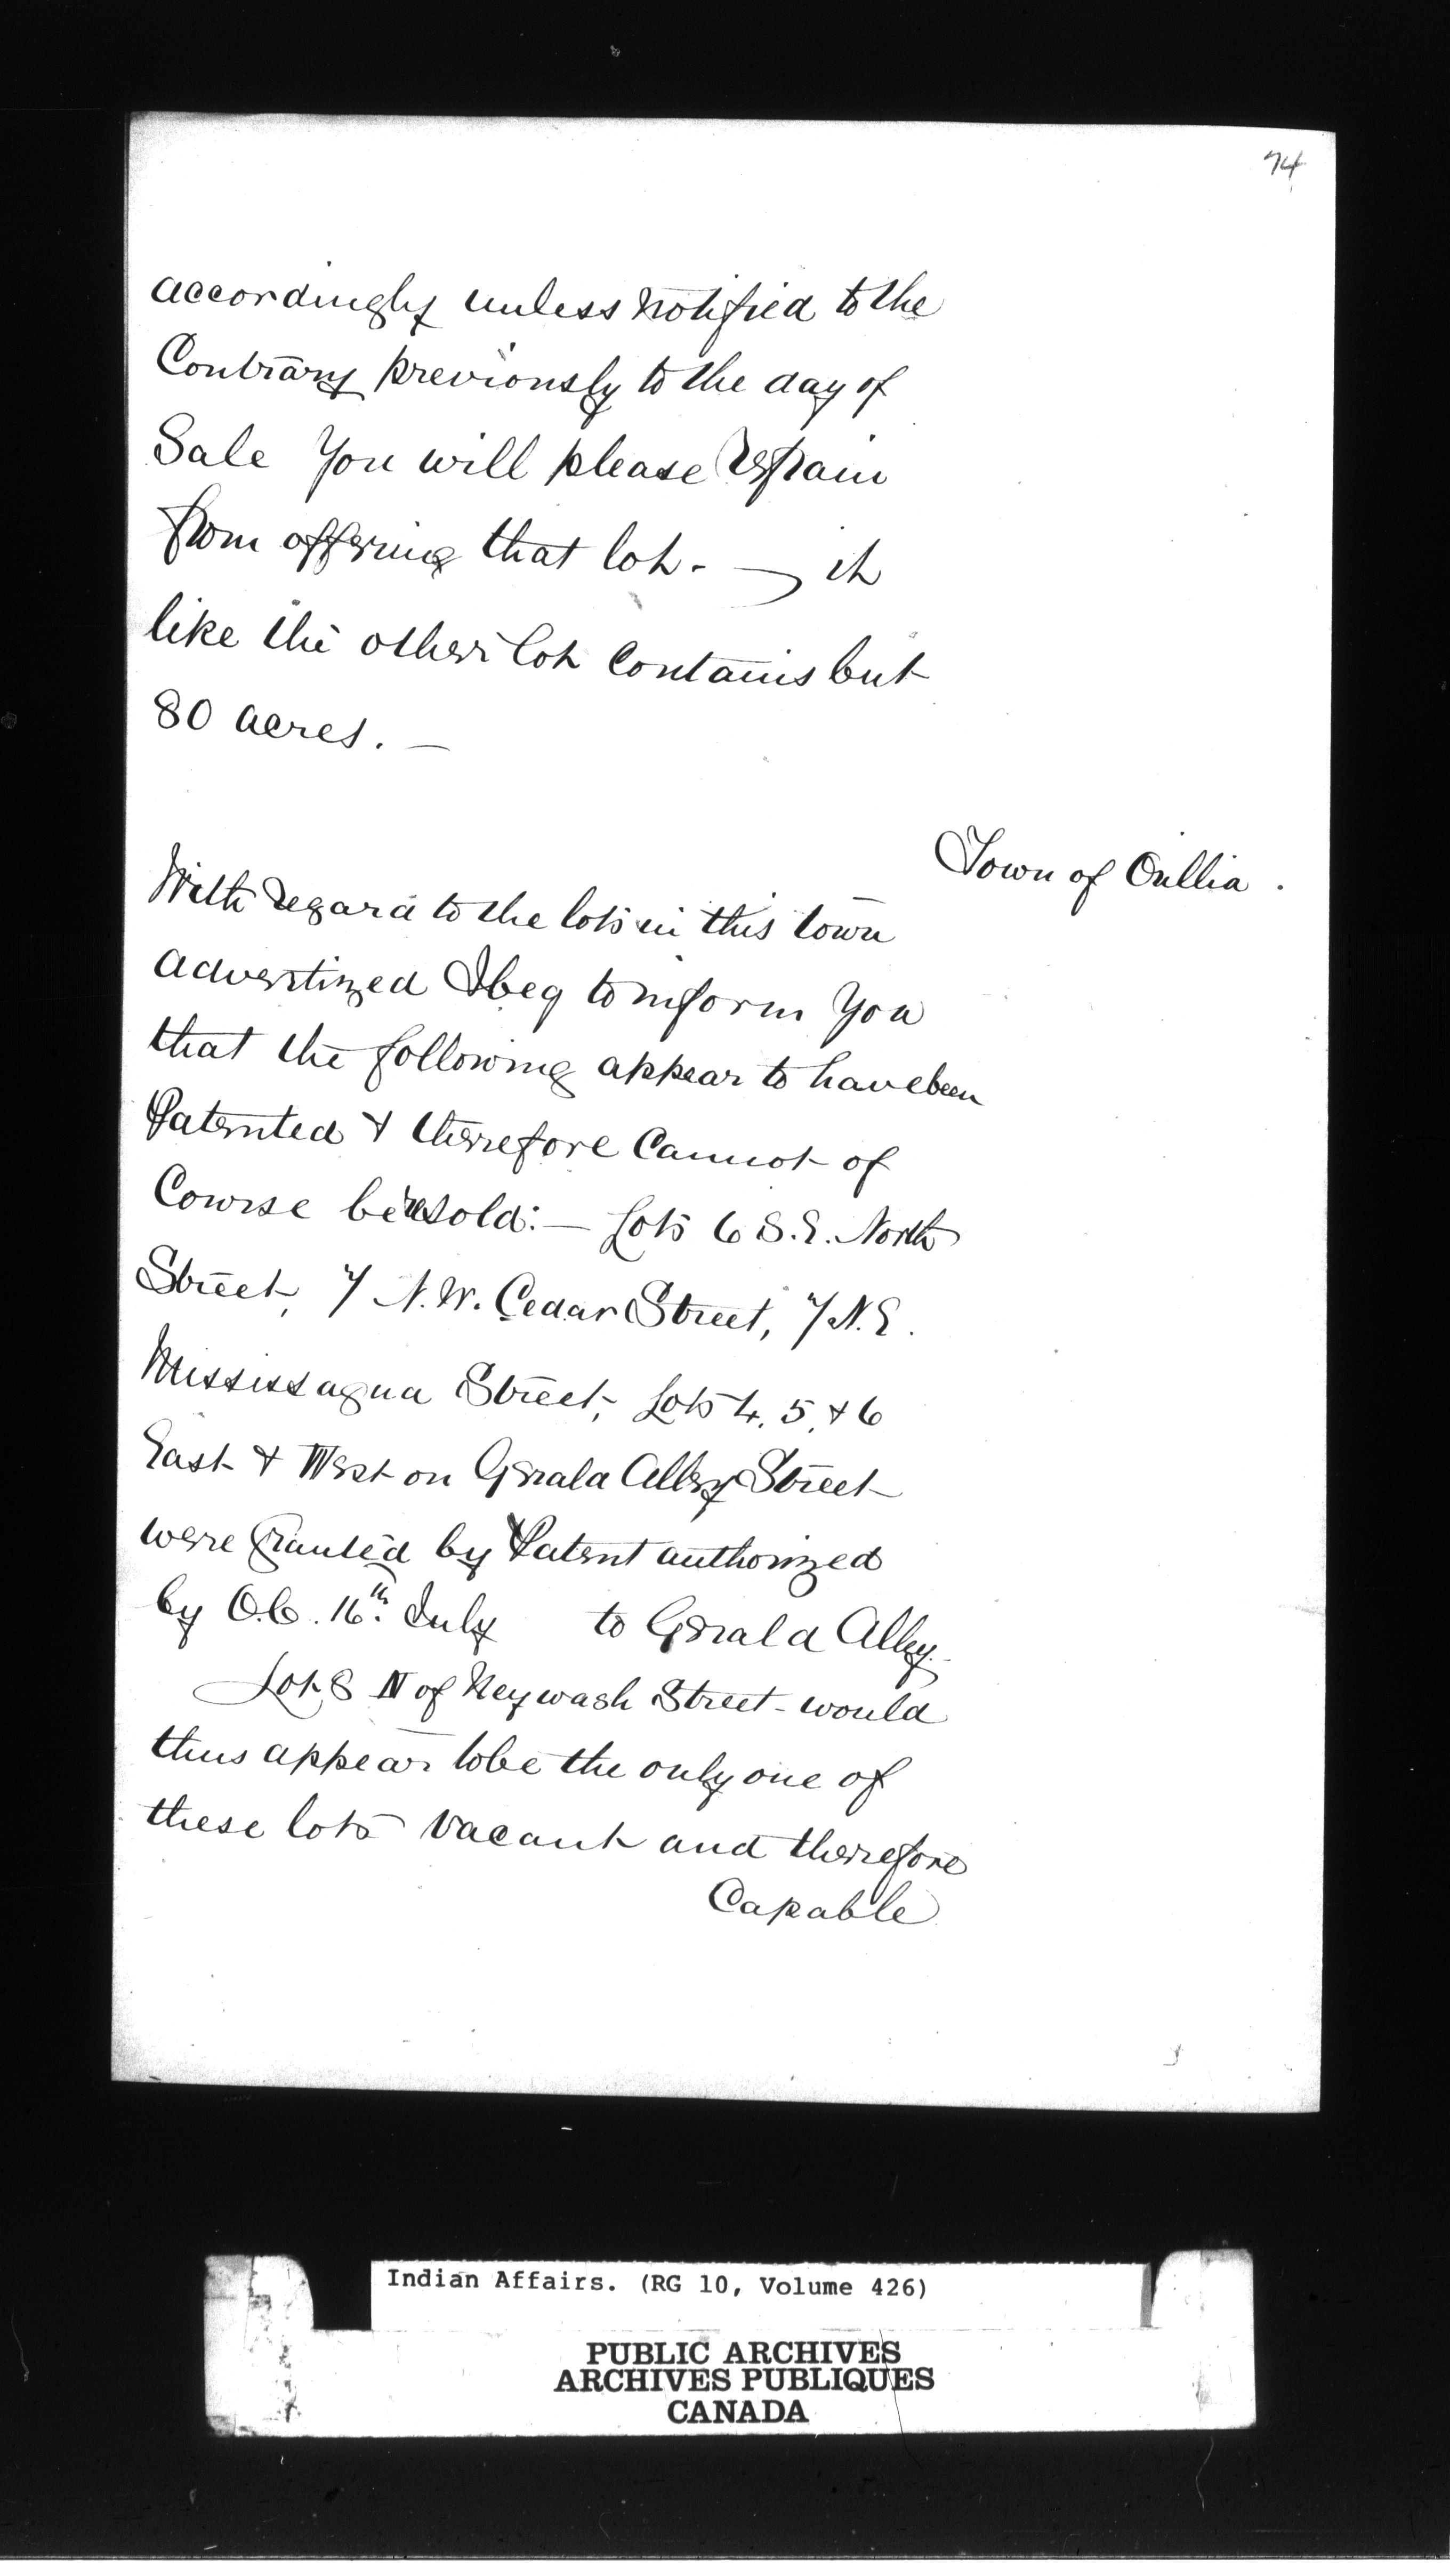 74
accordingly unless notified to the
Contrary previously to the day of
Sale You will please refrain
from offering that lot. — it
like the other lot Contains but
80 acres. —
Town of Orillia .
With regard to the lots in this town
advertized I beg to inform You
that the following appear to have been
Patented & therefore Cannot of
Course be resold: — Lots 6 S.E. North
Street, 7 N.W. Cedar Street, 7 N.E.
Mississagua Street, Lots 4, 5, & 6
East & West on Gerald Alley Street
were Granted by Patent authorized
by O.C. 16th July to Gerald Alley.
Lot 8 N of Neywash Street - would
thus appear to be the only one of
these lots vacant and therefore
Capable
Indian Affairs. (RG 10, Volume 426)
PUBLIC ARCHIVES
ARCHIVES PUBLIQUES
CANADA